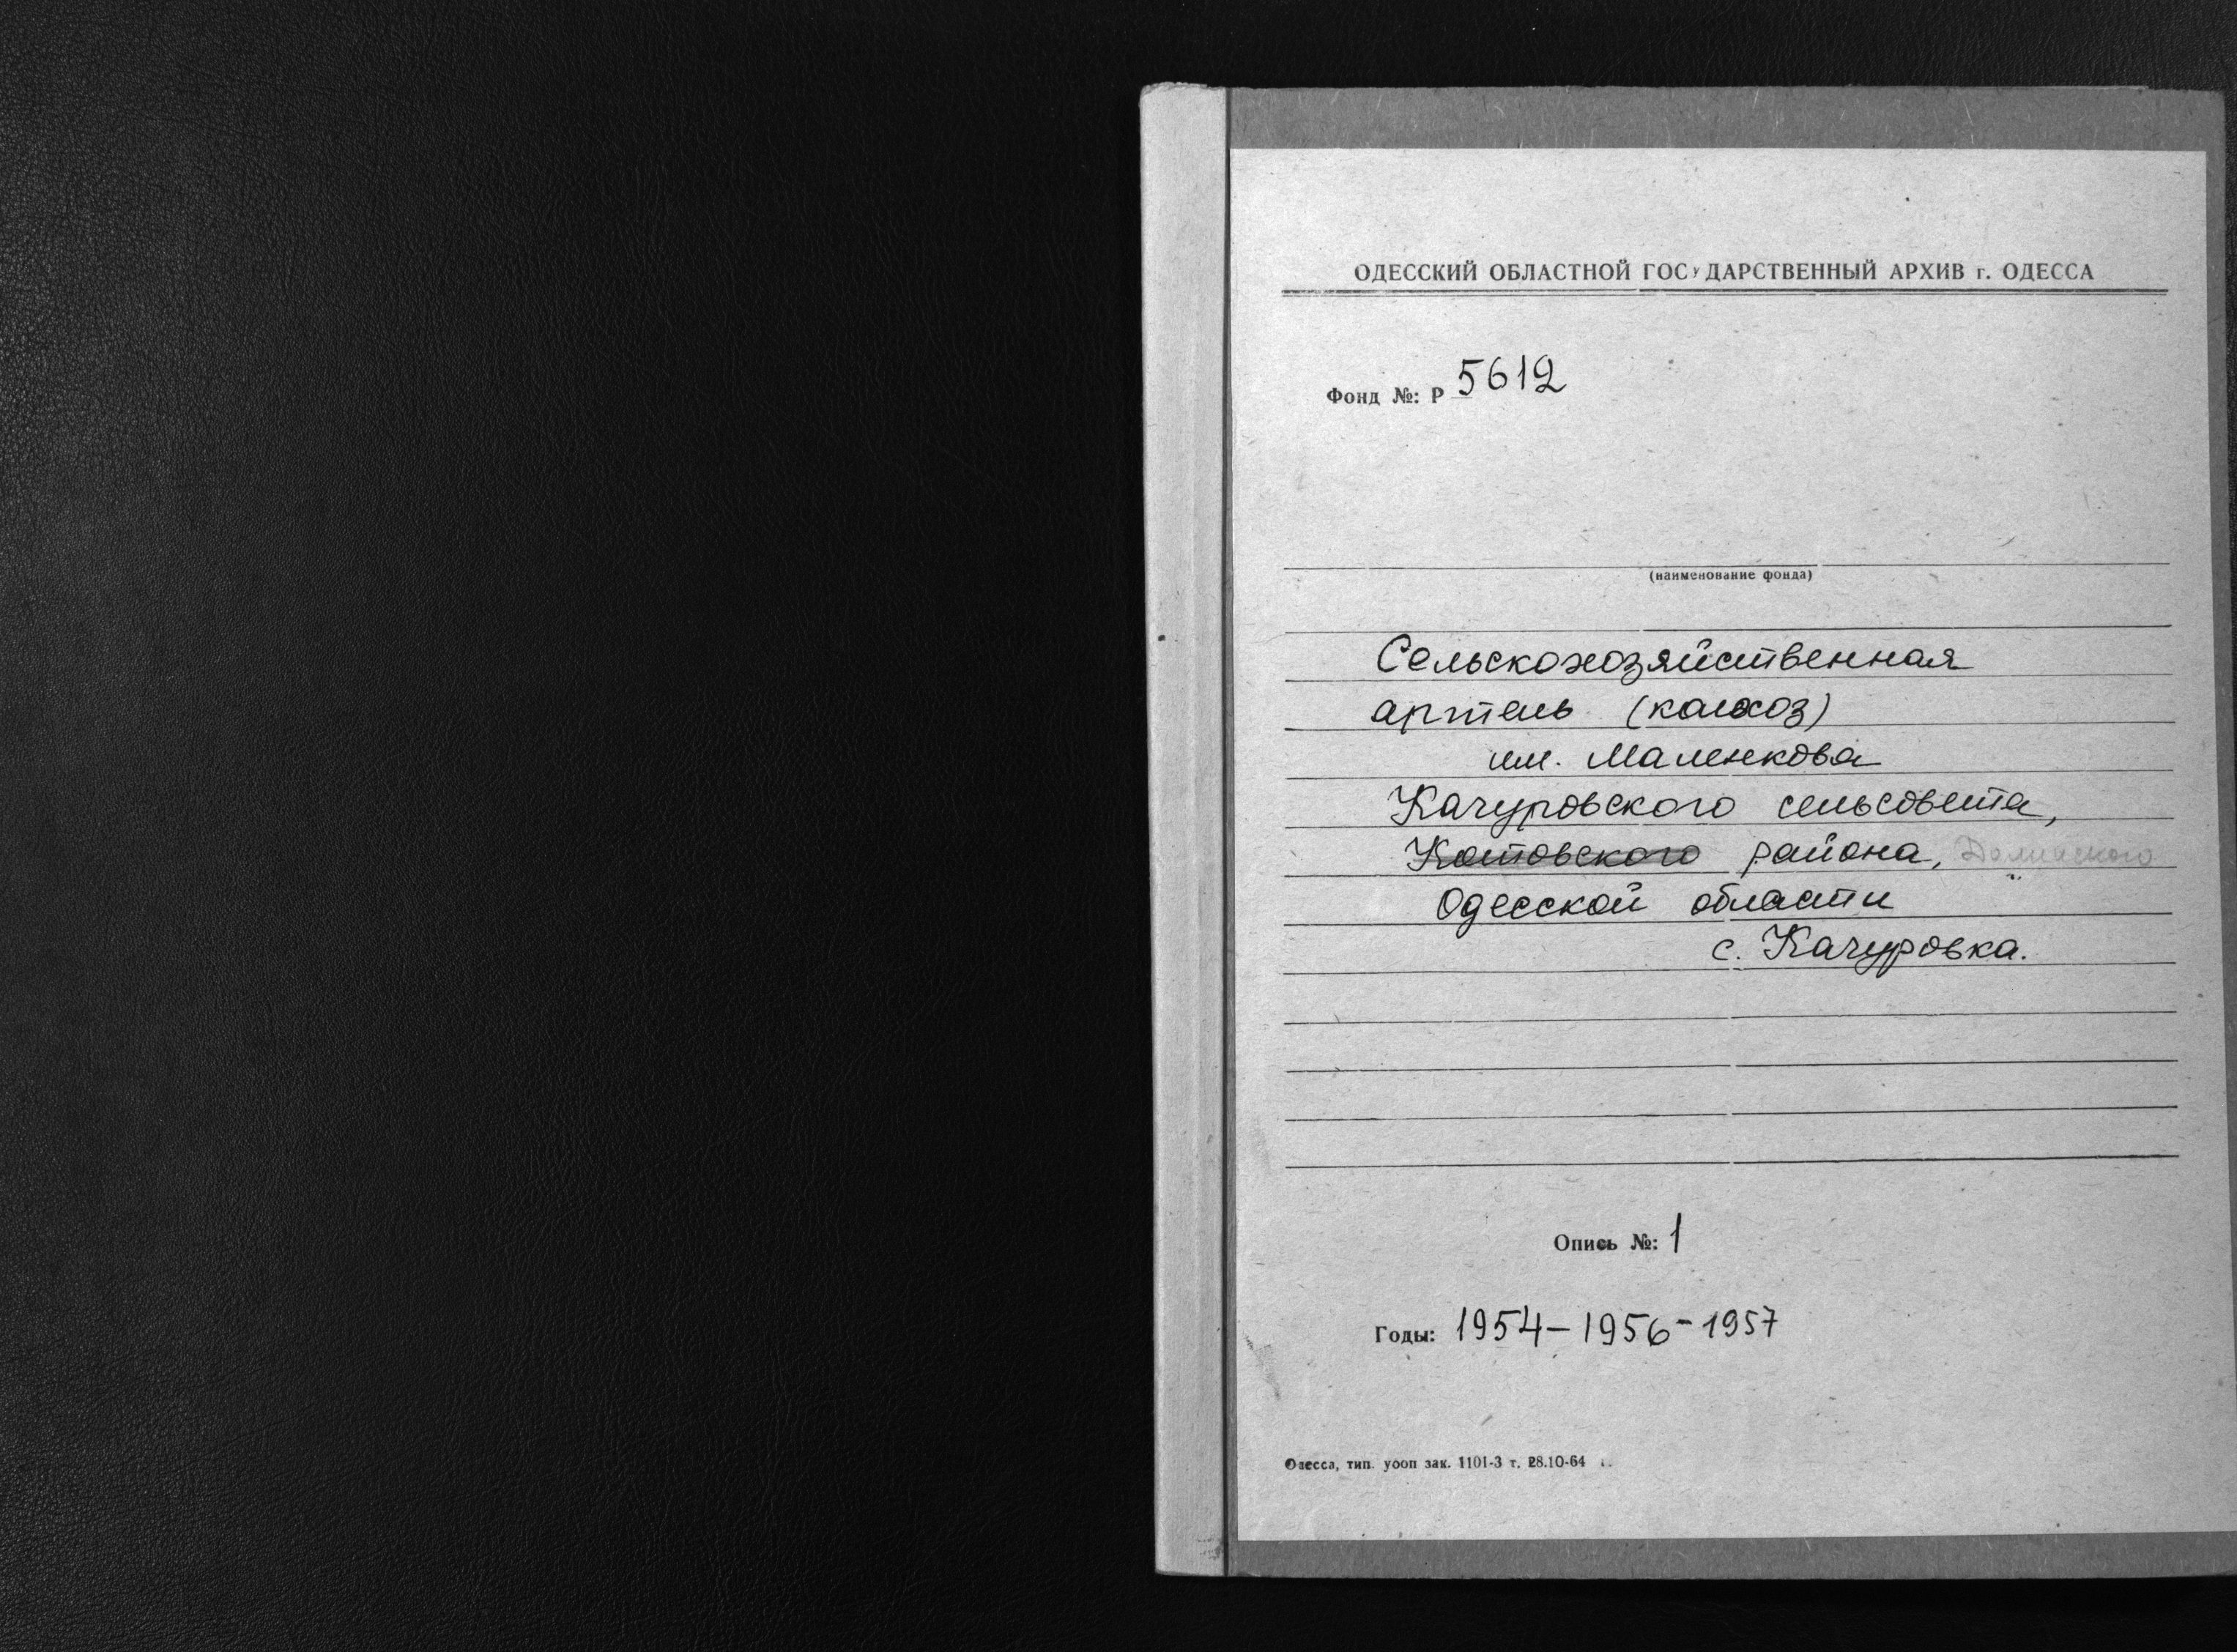 ОДЕССКИЙ ОБЛАСТНОЙ ГОСУДАРСТВЕННЫЙ АРХИВ г. ОДЕССА
Фонд №: Р 5612
(наименование фонда)
Сельскохозяйственная
артель (колхоз)
им. Маленкова
Качуровского сельсовета,
Котовского района,
Одесской области
с. Качуровка.
Опись №: 1
Годы: 1954-1956-1957
Одесса, тип. уооп зак. 1101-3 т. 28.10-64